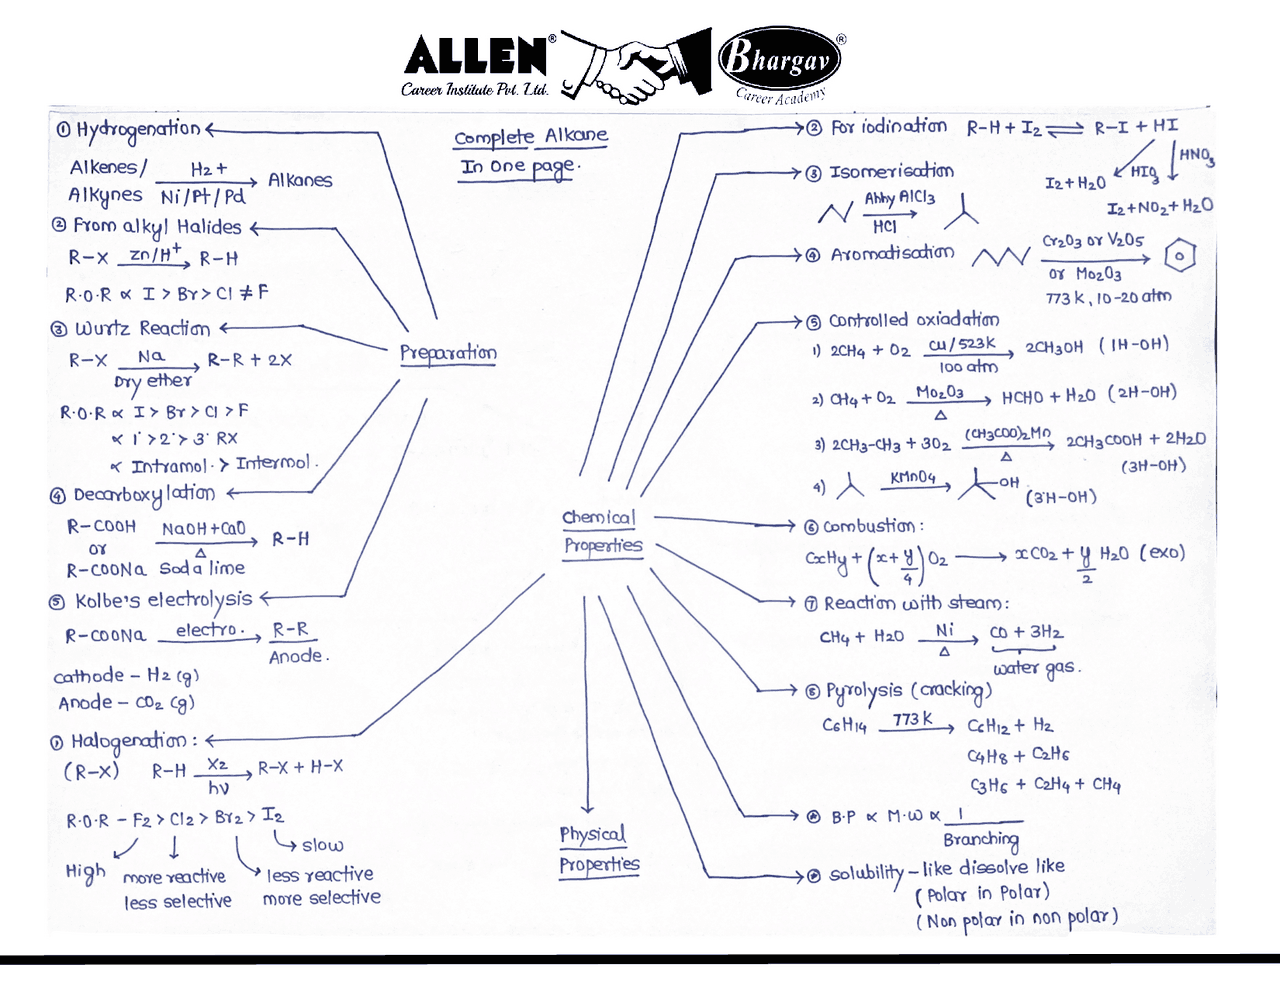 ALLEN®
Career Institute Pvt. Ltd.
Bhargav®
Career Academy
Complete Alkane
In One page.
① Hydrogenation
Alkenes/ H2 + Alkanes
Alkynes Ni/Pt/Pd
② From alkyl Halides
R-X Zn/H⁺ → R-H
R·O·R ∝ I > Br > Cl ≠ F
③ Wurtz Reaction
R-X Na → R-R + 2X
Dry ether
R·O·R ∝ I > Br > Cl > F
∝ 1° > 2° > 3° RX
∝ Intramol. > Intermol.
④ Decarboxylation
R-COOH NaOH+CaO → R-H
or Δ
R-COONa Soda lime
⑤ Kolbe's electrolysis
R-COONa electro. → R-R
Anode.
cathode - H2 (g)
Anode - CO2 (g)
Preparation
① Halogenation :
(R-X) R-H X2 → R-X + H-X
hν
R·O·R - F2 > Cl2 > Br2 > I2
slow
High more reactive less reactive
less selective more selective
Chemical
Properties
Physical
Properties
② For iodination R-H + I2 ⇌ R-I + HI
HNO3
HIO3
I2 + H2O
I2 + NO2 + H2O
③ Isomerisation
Ahhy AlCl3
HCl
④ Aromatisation Cr2O3 or V2O5
or Mo2O3
773 k, 10-20 atm
⑤ Controlled oxiadation
1) 2CH4 + O2 Cu/523k → 2CH3OH (1H-OH)
100 atm
2) CH4 + O2 Mo2O3 → HCHO + H2O (2H-OH)
Δ
3) 2CH3-CH3 + 3O2 (CH3COO)2Mn → 2CH3COOH + 2H2O
Δ (3H-OH)
4) KMnO4 → OH
(3°H-OH)
⑥ Combustion :
CxHy + (x + y/4) O2 → xCO2 + y/2 H2O (exo)
⑦ Reaction with steam :
CH4 + H2O Ni → CO + 3H2
Δ
water gas.
⑧ Pyrolysis (cracking)
C6H14 773 k → C6H12 + H2
C4H8 + C2H6
C3H6 + C2H4 + CH4
B·P ∝ M·W ∝ 1
Branching
solubility - like dissolve like
(Polar in Polar)
(Non polar in non polar)